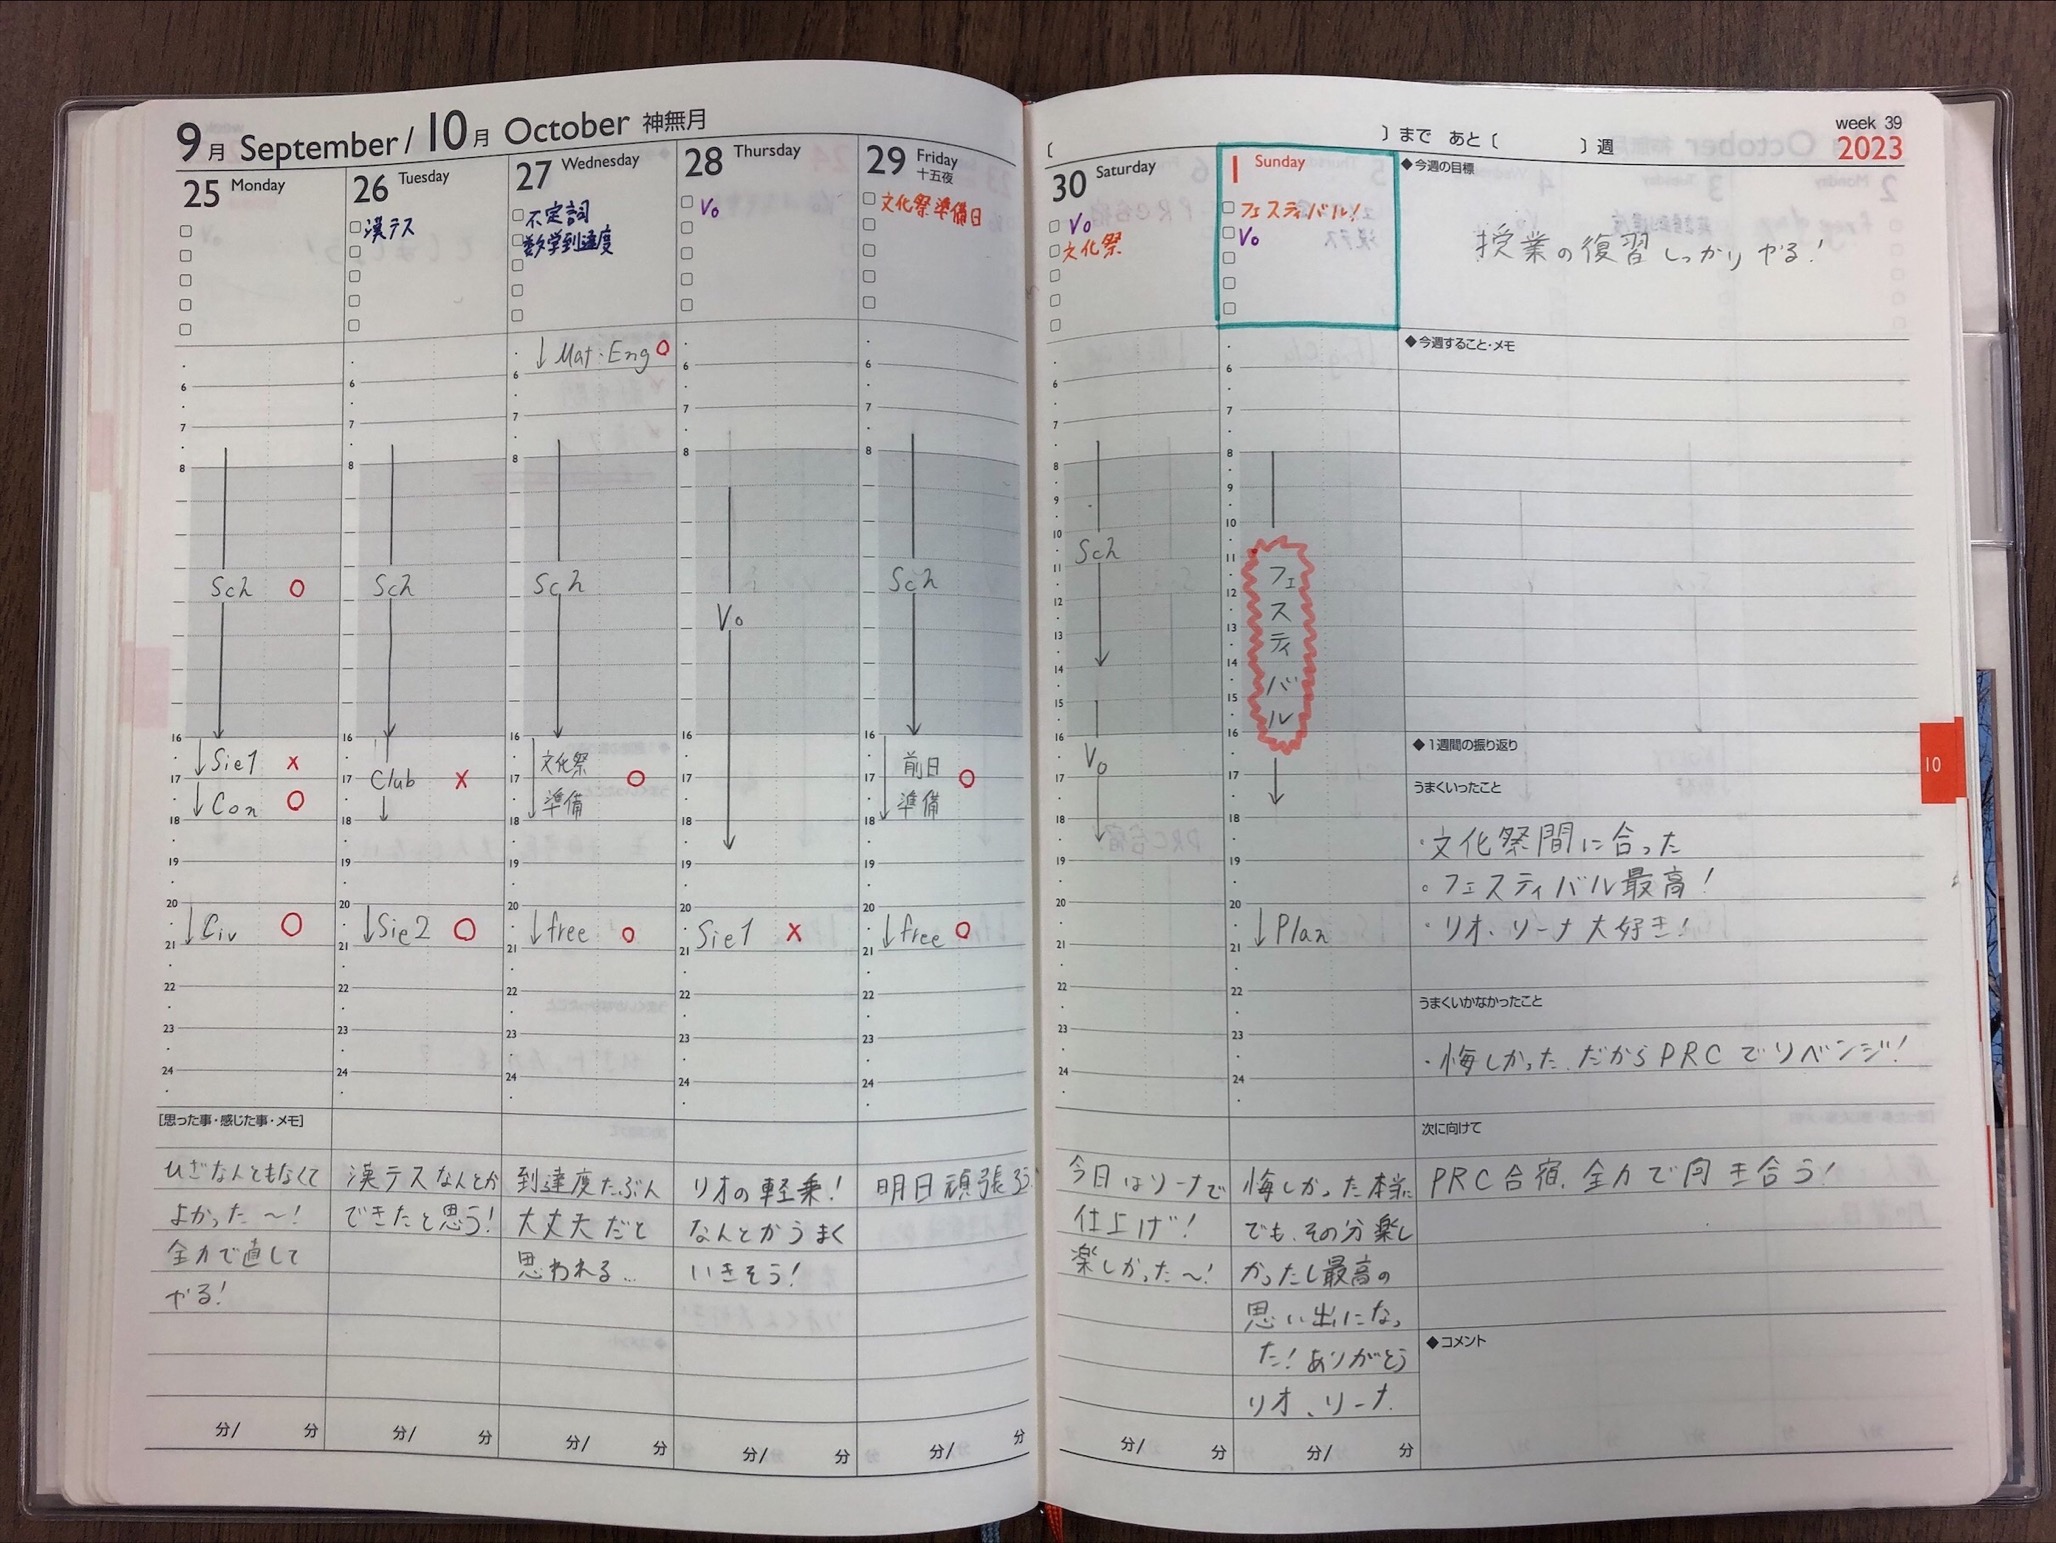 9月 September / 10月 October 神無月
25 Monday
26 Tuesday
漢テス
27 Wednesday
不定詞
数学到達度
28 Thursday
Vo
29 Friday
十五夜
文化祭準備日
Mat・Eng ○
6
7
8
16
17
18
19
20
21
22
23
24
Sch ○
Sie1 ×
Con ○
Civ ○
Sch
Club ×
Sie2 ○
Sch
文化祭
準備 ○
free ○
Vo
Sie1 ×
Sch
前日
準備 ○
free ○
[思った事・感じた事・メモ]
ひざなんともなくて
よかった〜!
全力で直して
やる!
漢テスなんとか
できたと思う!
到達度たぶん
大丈夫だと
思われる…
リオの軽乗!
なんとかうまく
いきそう!
明日頑張ろう
分/ 分
分/ 分
分/ 分
分/ 分
分/ 分
〔 〕まで あと〔 〕週
week 39
2023
30 Saturday
Vo
文化祭
1 Sunday
フェスティバル!
Vo
◆今週の目標
授業の復習しっかりやる!
◆今週すること・メモ
6
7
8
9
10
11
12
13
14
15
16
17
18
19
20
21
22
23
24
Sch
Vo
フェスティバル
Plan
◆1週間の振り返り
うまくいったこと
・文化祭間に合った
。フェスティバル最高!
・リオ、リーナ大好き!
うまくいかなかったこと
・悔しかった.だからPRCでリベンジ!
次に向けて
PRC合宿.全力で向き合う!
◆コメント
10
今日はリーナで
仕上げ!
楽しかった〜!
悔しかった本当に
でも.その分楽し
かったし最高の
思い出になっ
た!ありがとう
リオ、リーナ.
分/ 分
分/ 分